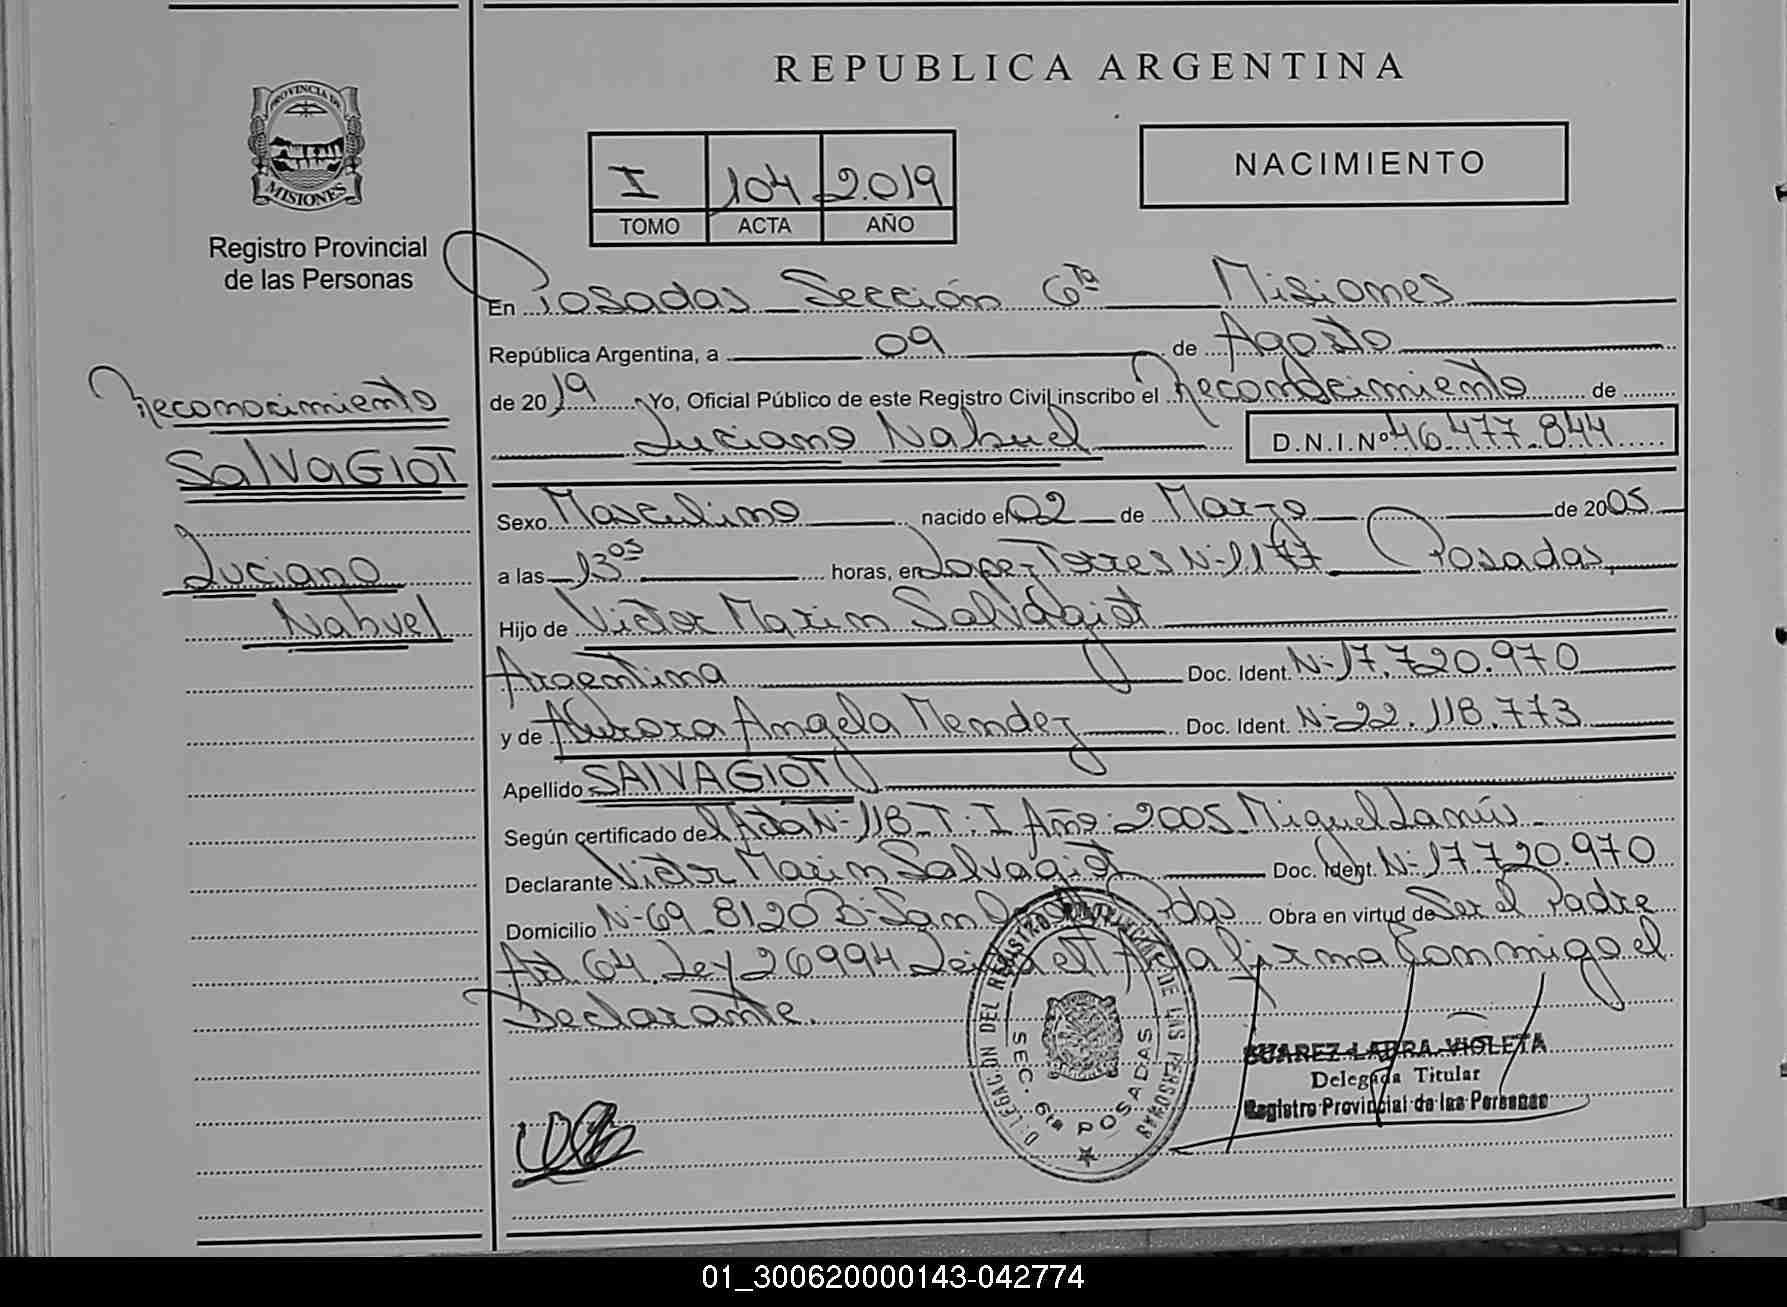 REPUBLICA ARGENTINA
PROVINCIA DE
MISIONES
Registro Provincial
de las Personas
I 104 2.019
TOMO ACTA AÑO
NACIMIENTO
En Posadas Sección 6ta Misiones
República Argentina, a 09 de Agosto
de 2019 Yo, Oficial Público de este Registro Civil inscribo el Reconocimiento de
Luciano Nahuel D.N.I.Nº 46.477.844
Reconocimiento
SALVAGIOT
Luciano
Nahuel
Sexo Masculino nacido el 02 de Marzo de 2005
a las 13 05 horas, en Lopez Torres Nº 1177 Posadas
Hijo de Victor Marin Salvagiot
Argentina Doc. Ident. Nº 17.720.970
y de Aurora Angela Mendez Doc. Ident. Nº 22.118.773
Apellido SALVAGIOT
Según certificado del Acta Nº 118 T: I Año: 2005 Miguel Lanús
Declarante Victor Marin Salvagiot Doc. Ident. Nº 17.720.970
Domicilio Nº 69 8120 Bº San Pdas Obra en virtud de Ser el Padre
Art 64 Ley 26994 Leida el Acta firma Conmigo el
Declarante.
DELEGACION DEL REGISTRO PROVINCIAL DE LAS PERSONAS
SEC. 6ta POSADAS
SUAREZ LABRA VIOLETA
Delegada Titular
Registro Provincial de las Personas
01_300620000143-042774